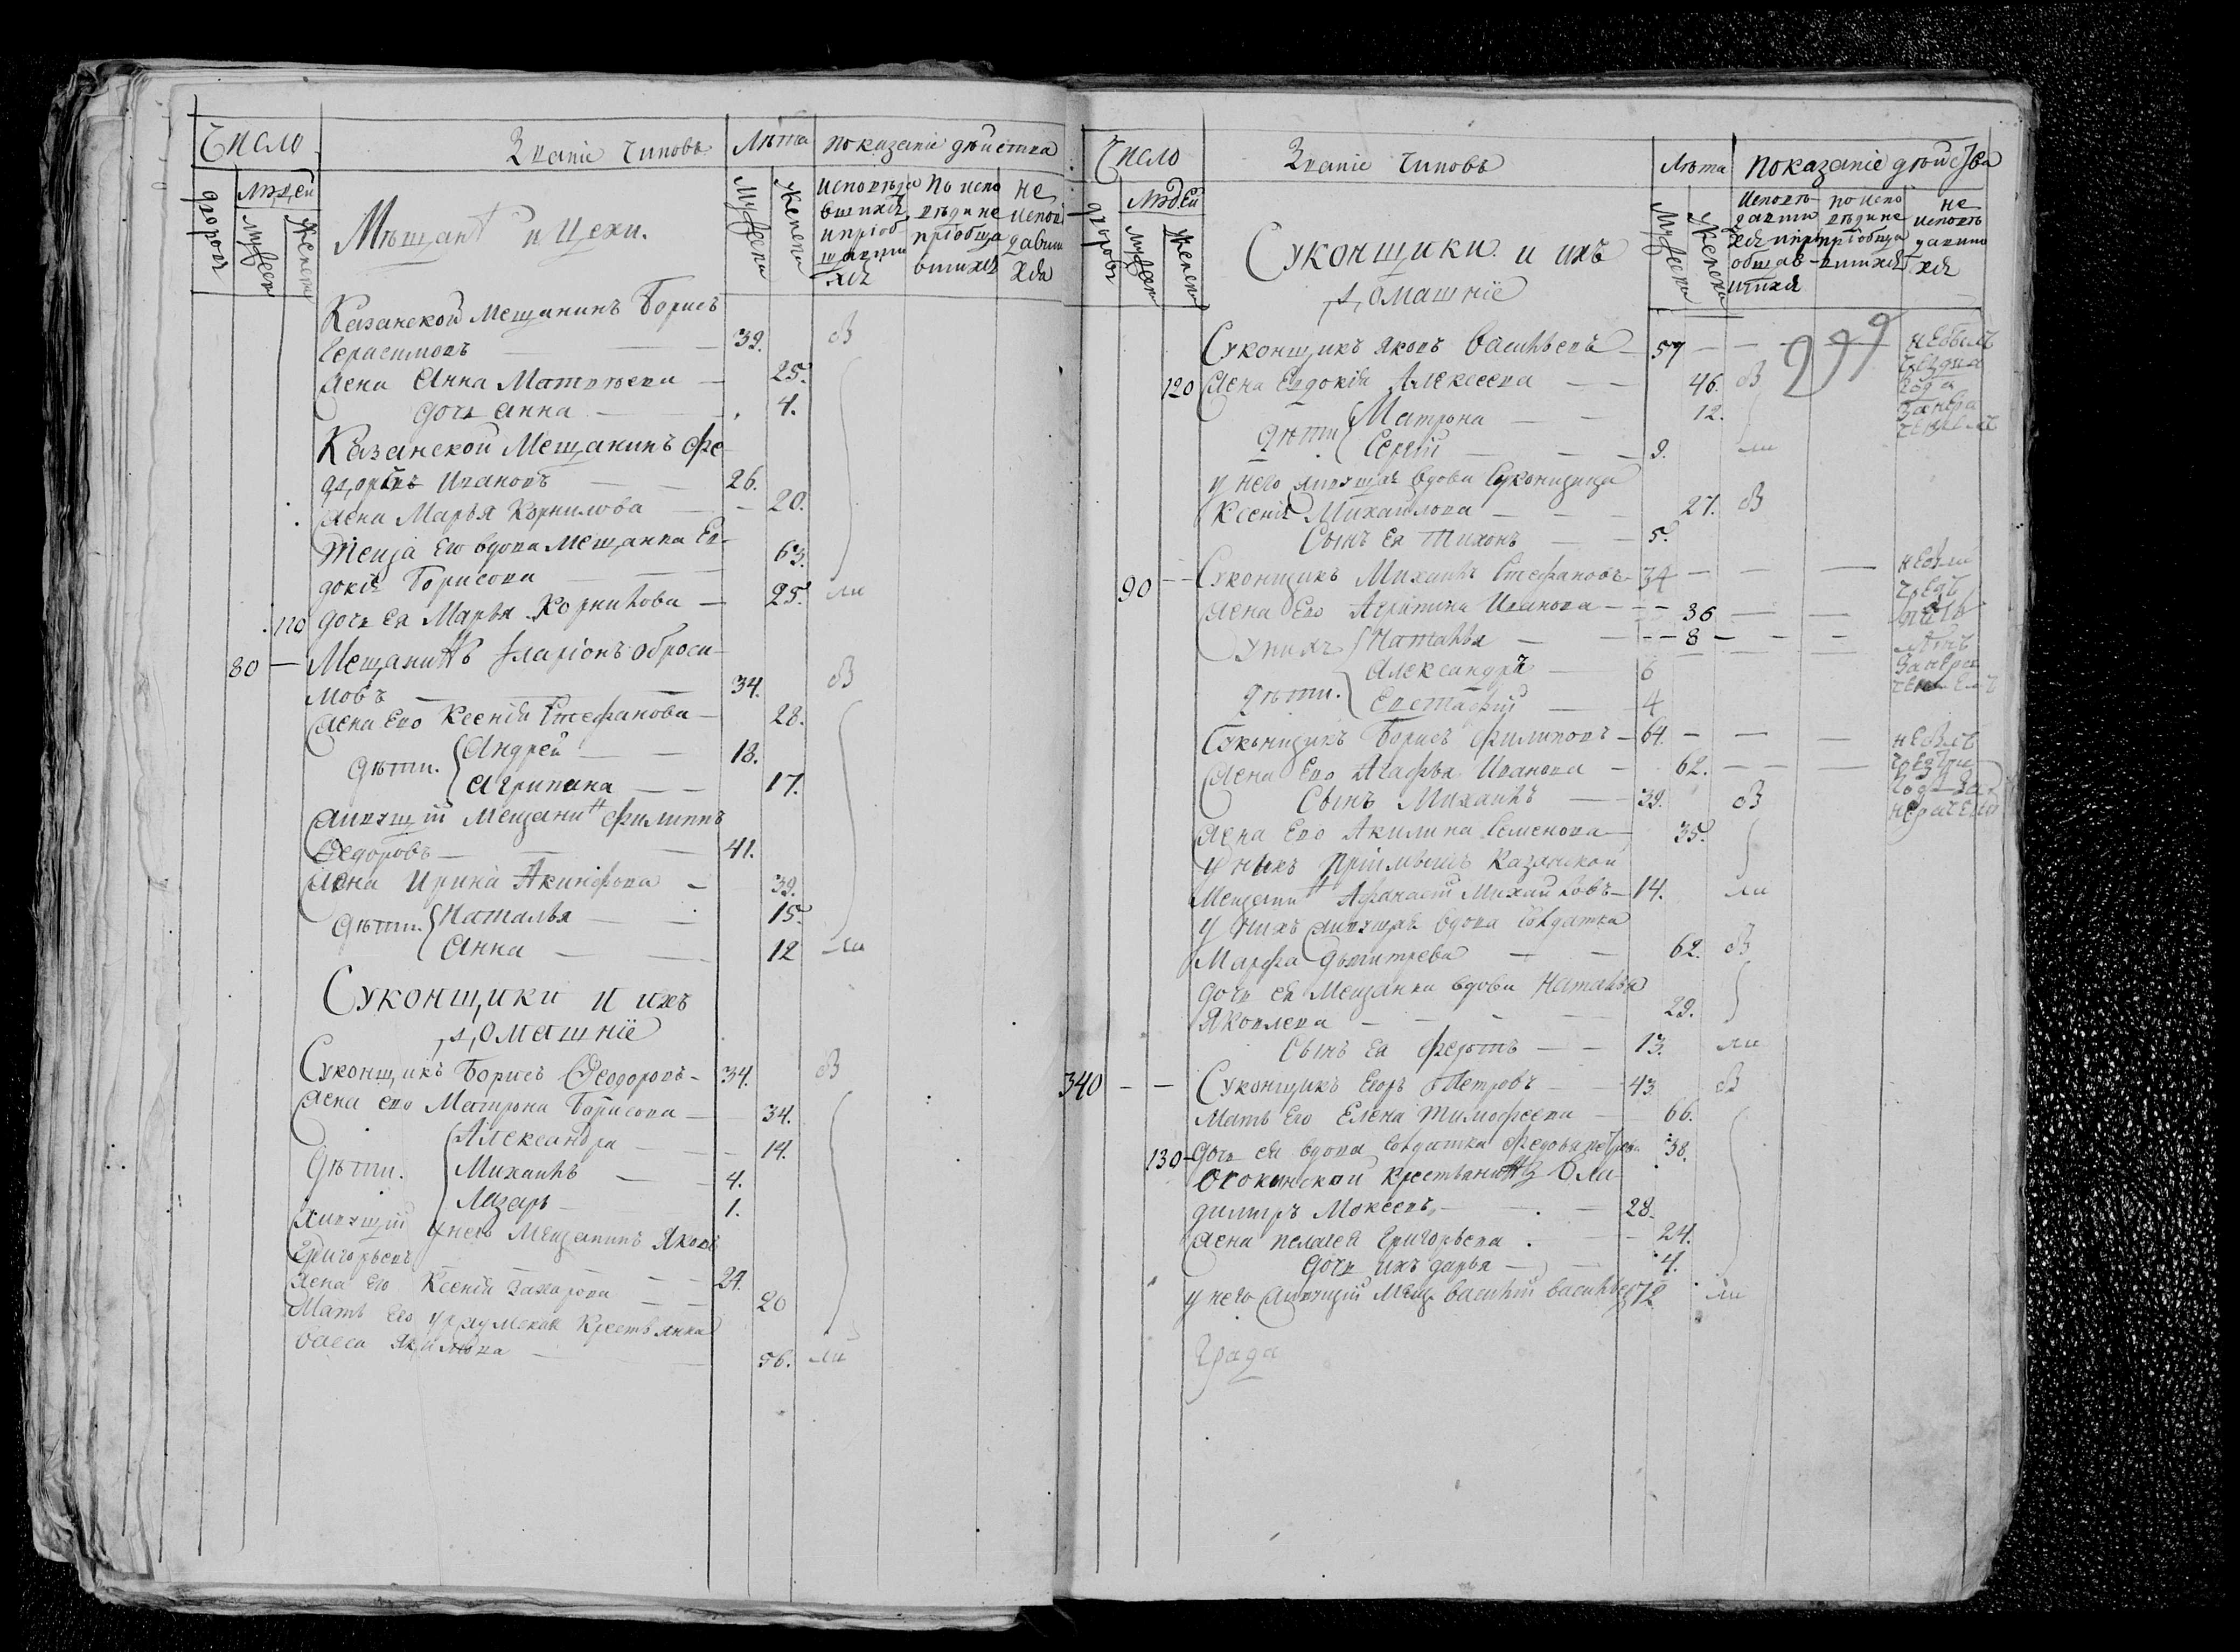 Число Званіе чиновъ Лѣта показаніе дѣйства
дворовъ Людей Мужеска Женска
Исповѣдавшихся и пріобщавшихся
по исповѣди не пріобщавшихся
не исповѣдавшихся
Мѣщанъ и Цехи.
Казанской мещанинъ Борисъ
Герасимовъ — 39. в
жена Анна Матвѣева — 25.
дочь Анна — 4.
Казанской Мещанинъ Фе-
доръ Ивановъ — 26.
жена Марья Корнилова — 20.
Теща Его вдова Мещанка Ев-
докія Борисова — 63.
120 дочь Ея Марья Корнилова — 25. ли
80 — Мещанинъ Иларіонъ Аброси-
мовъ — 34. в
жена Его Ксенія Стефанова — 28.
дѣти. Андрей — 18.
Агрипина — 17.
живущій Мещанинъ Филиппъ
Федоровъ — 41.
жена Ирина Акинфова — 39.
дѣти. Наталья — 15.
Анна — 12 ли
Суконщики и ихъ
домашніе
Суконщикъ Борисъ Феодоровъ — 34. в
жена его Матрона Борисова — 34.
дѣти. Александра — 14.
Михаилъ — 4.
Лазарь — 1.
живущій у него Мещанинъ Яковъ
Григорьевъ — 24.
жена Его Ксенія Захарова — 20
Мать Его уржумская Крестьянка
Васса Якимова — 56. ли
Число Званіе чиновъ Лѣта показаніе дѣйства
дворовъ Людей Мужеска Женска
Исповѣдавшихся и пріобщавшихся
по исповѣди не пріобщавшихся
не исповѣдавшихся
Суконщики и ихъ
домашніе
299
Суконщикъ Яковъ Васильевъ — 57 — — — небылъ
120 жена Евдокія Алексеева — 46. в
дѣти Матрона — 12.
Сергій — 9. ли
у него живущая вдова Суконщица
Ксенія Михаилова — 27. в
Сынъ Ея Тихонъ — 5.
90 — Суконщикъ Михаилъ Стефановъ — 34 — — —
жена Его Агрипина Иванова — 36 — —
у нихъ дѣти. Наталья — 8 — — —
Александръ — 6
Евстафій — 4
Суконщикъ Борисъ Филиповъ — 64. — — —
жена Его Агафья Иванова — 62. — — —
Сынъ Михаилъ — 39. в
жена Его Акилина Семенова — 35.
у нихъ пріимышъ Казанской
Мещанинъ Афанасій Михаиловъ — 14. ли
у нихъ живущая вдова Солдатка
Марфа Дмитрева — 62. в
дочь ея Мещанка вдова Наталья
Яковлева — 29.
Сынъ Ея Федотъ — 13. ли
340 — — Суконщикъ Егоръ Петровъ — 43 в
Мать Его Елена Тимофеева — 66.
130 — дочь ея вдова Солдатка Федосья Петрова 38.
Осокинской Крестьянинъ Вла-
димиръ Мокеевъ — 28.
жена Пелагея Григорьева — 24.
дочь ихъ Дарья — 4.
у него живущій Мещ. Василій Васильевъ 72 ли
Града